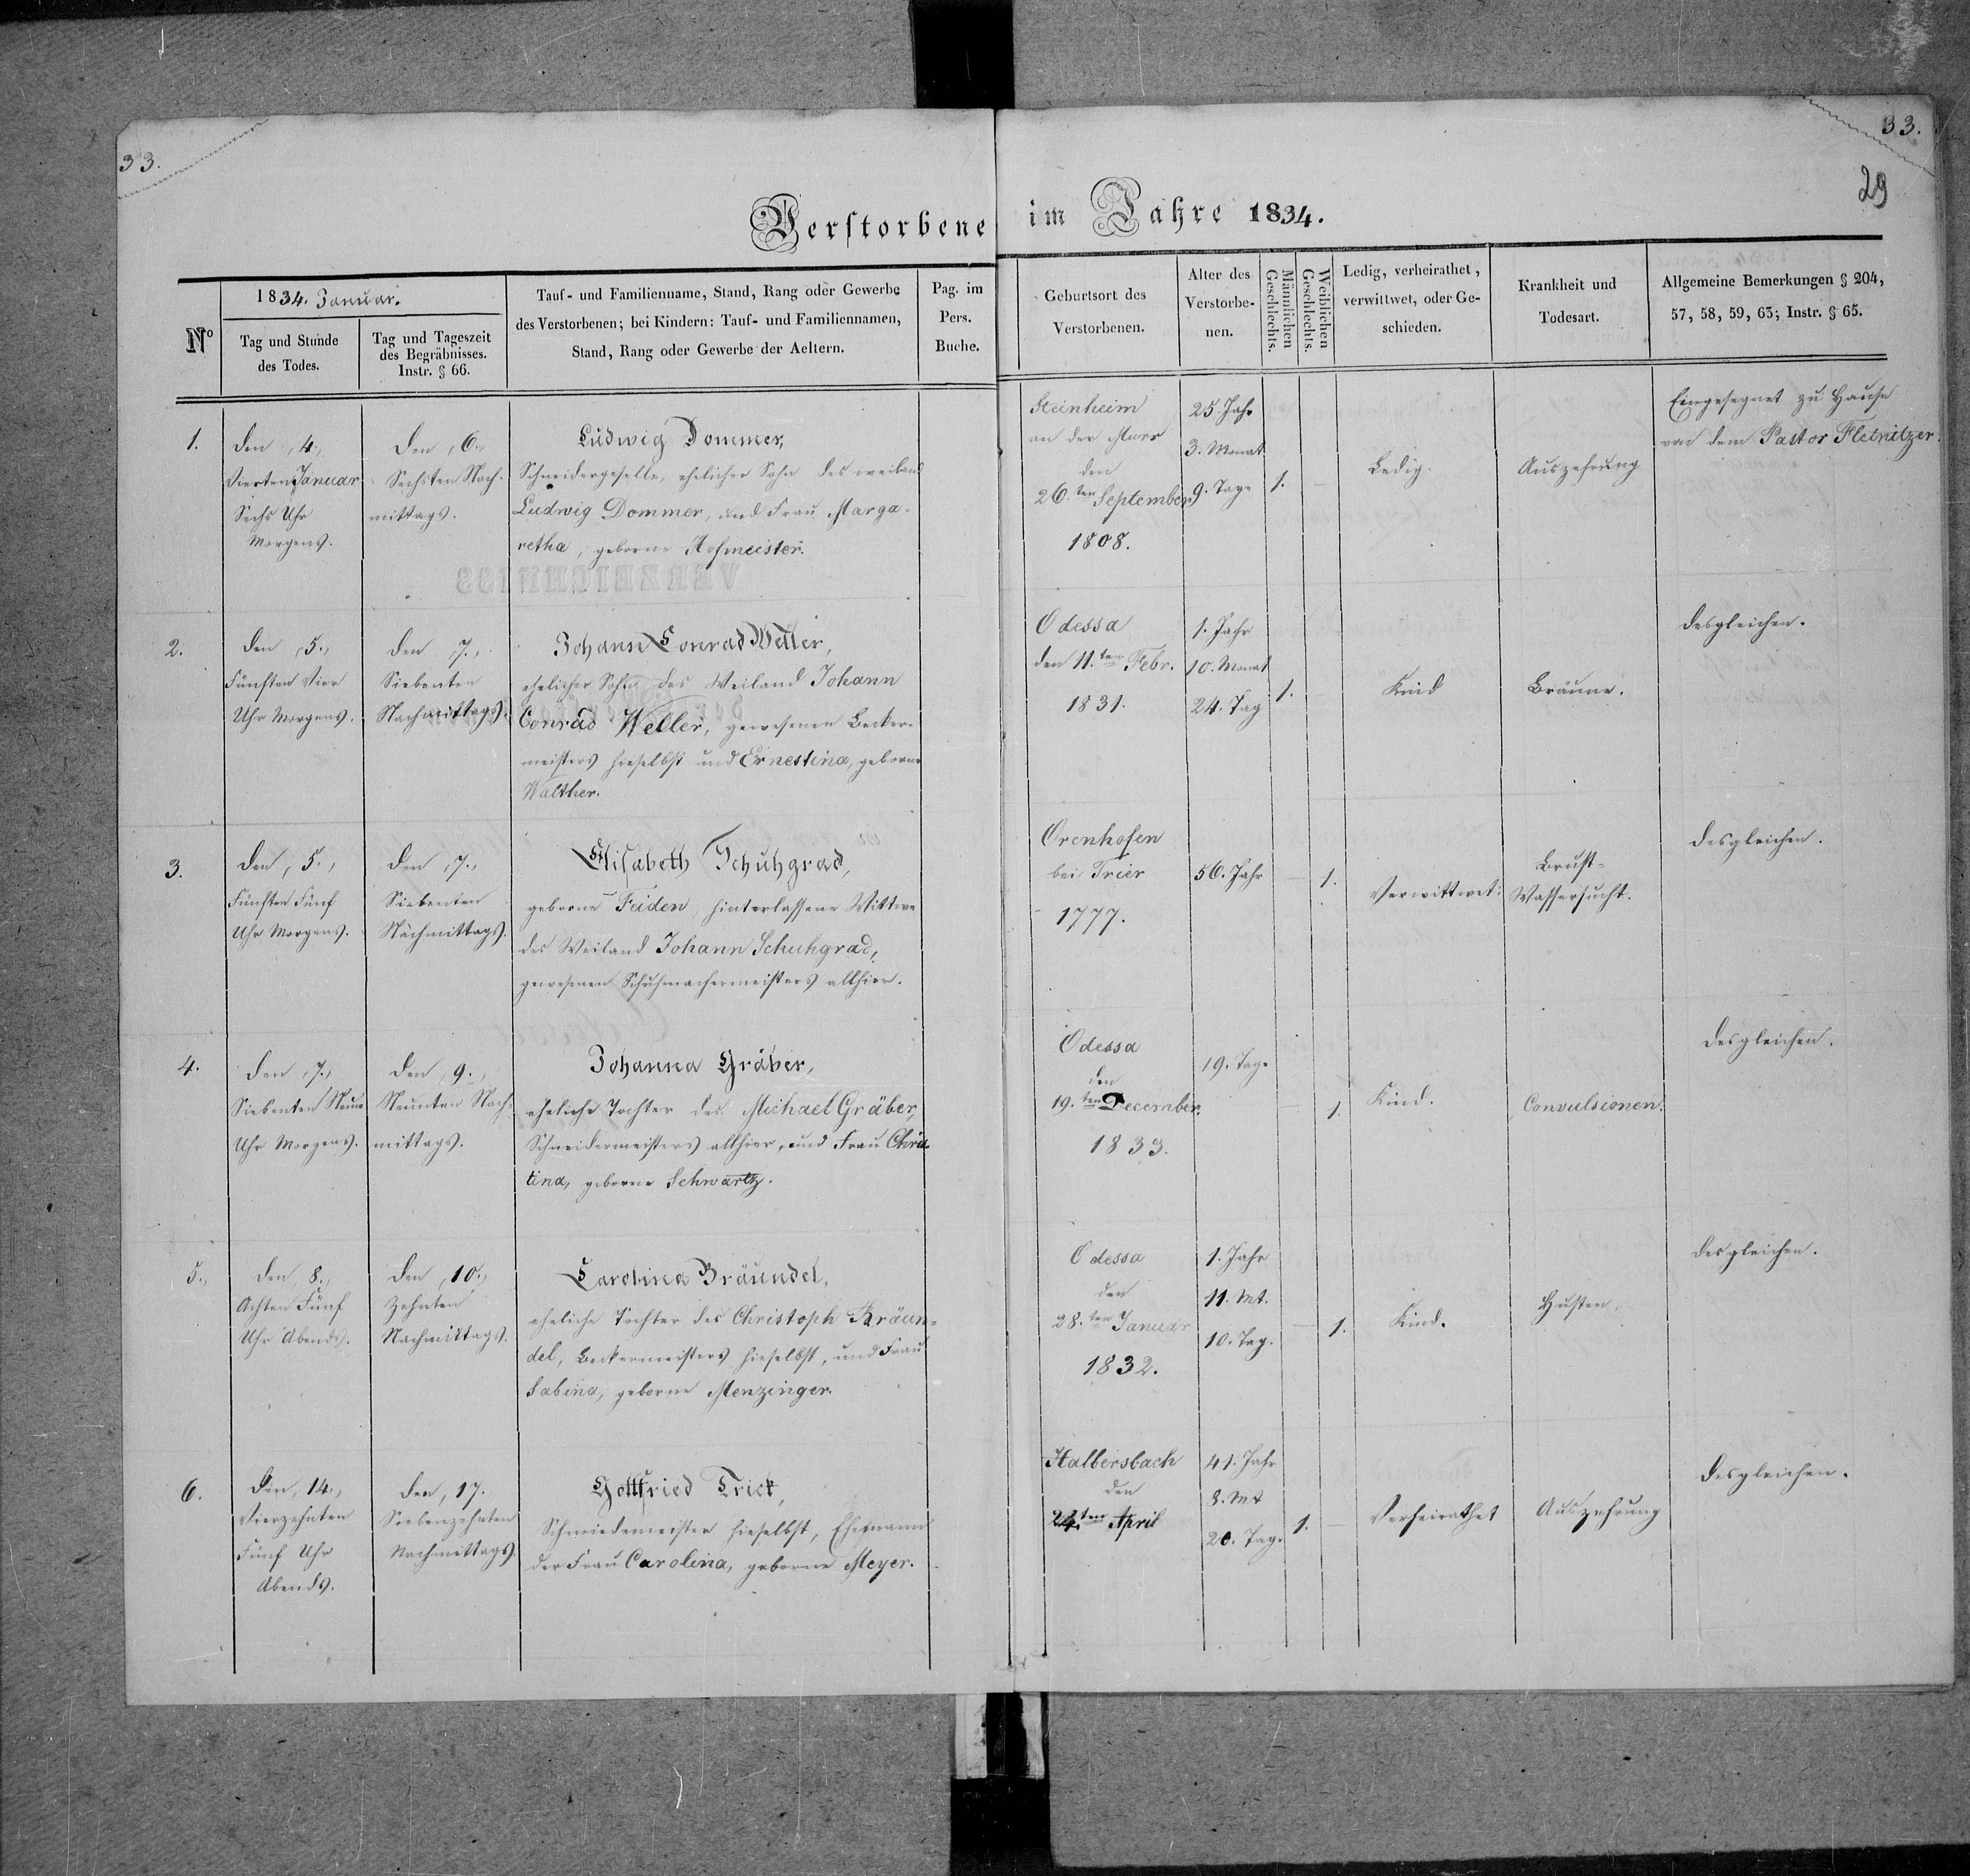 33.
33.
29
Verstorbene im Jahre 1834.
No
1834. Januar.
Tag und Stunde
des Todes.
Tag und Tageszeit
des Begräbnisses.
Instr. § 66.
Tauf- und Familienname, Stand, Rang oder Gewerbe
des Verstorbenen; bei Kindern: Tauf- und Familiennamen,
Stand, Rang oder Gewerbe der Aeltern.
Pag. im
Pers.
Buche.
Geburtsort des
Verstorbenen.
Alter des
Verstorbe-
nen.
Männlichen
Geschlechts.
Weiblichen
Geschlechts.
Ledig, verheirathet,
verwittwet, oder Ge-
schieden.
Krankheit und
Todesart.
Allgemeine Bemerkungen § 204,
57, 58, 59, 63; Instr. § 65.
1.
Den 4.,
Vierten Januar
Sechs Uhr
Morgens.
Den 6.,
Sechsten Nach-
mittags.
Ludwig Dommer,
Schneidergeselle, ehelicher Sohn des weiland
Ludwig Dommer, und Frau Marga-
retha, geborne Hofmeister.
Steinheim
an der Murr
den
26.ten September
1808.
25. Jahr
3. Monat
9. Tage
1.
Ledig.
Auszehrung
Eingesegnet zu Hause
von dem Pastor Fletnitzer.
2.
Den 5.,
Fünften Vier
Uhr Morgens.
Den 7.,
Siebenten
Nachmittags.
Johann Conrad Weller,
ehelicher Sohn des Weiland Johann
Conrad Weller, gewesenen Becker-
meisters hieselbst und Ernestina, geborne
Walther.
Odessa
den 11.ten Febr.
1831.
1. Jahr
10. Monat
24. Tag
1.
Kind
Bräune.
Desgleichen.
3.
Den 5.,
Fünften Fünf
Uhr Morgens.
Den 7.,
Siebenten
Nachmittags.
Elisabeth Schuhgrad,
geborne Feiden, hinterlassene Wittwe
des Weiland Johann Schuhgrad,
gewesenen Schuhmachermeisters allhier.
Orenhofen
bei Trier
1777.
56. Jahr
1.
Verwittwet.
Brust-
Wassersucht.
Desgleichen.
4.
Den 7.,
Siebenten Neun
Uhr Morgens.
Den 9.,
Neunten Nach-
mittags.
Johanna Gräber,
eheliche Tochter des Michael Gräber,
Schneidermeisters allhier, und Frau Chris-
tina, geborne Schwartz.
Odessa
den
19.ten December.
1833.
19. Tage
1.
Kind.
Convulsionen.
Desgleichen.
5.
Den 8.,
Achten Fünf
Uhr Abends.
Den 10.,
Zehnten
Nachmittags.
Carolina Bräundel,
eheliche Tochter des Christoph Bräun-
del, Beckermeisters hieselbst, und Frau
Sabina, geborne Menzinger.
Odessa
den
28.ten Januar
1832.
1. Jahr
11. Mt.
10. Tag.
1.
Kind.
Husten.
Desgleichen.
6.
Den 14.,
Vierzehnten
Fünf Uhr
Abends.
Den 17.
Siebenzehnten
Nachmittags.
Gottfried Trick,
Schmiedemeister hieselbst, Ehemann
der Frau Carolina, geborne Meyer.
Halbersbach
den
24.ten April
41. Jahr
8. Mt
20. Tage
1.
Verheirathet
Auszehrung
Desgleichen.